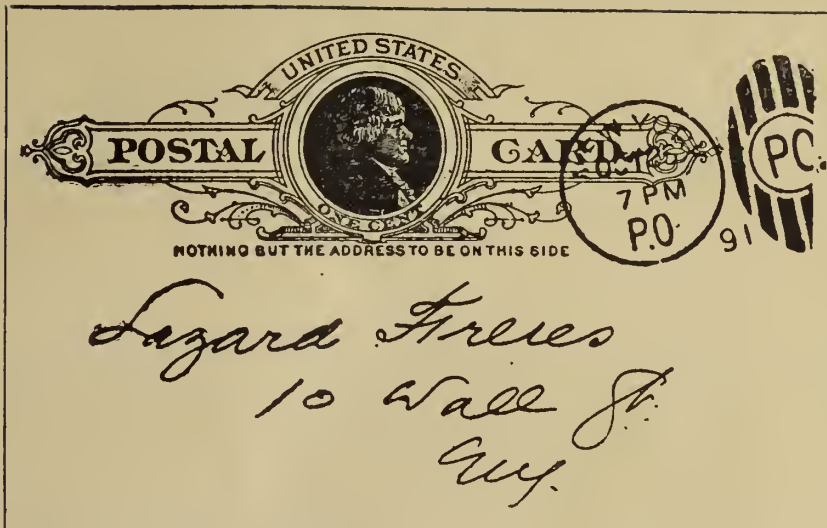 UNITED STATES
POSTAL CARD
ONE CENT
NOTHING BUT THE ADDRESS TO BE ON THIS SIDE
7 PM
P.O.
91
PO
Lazard Freres
10 Wall St.
N.Y.